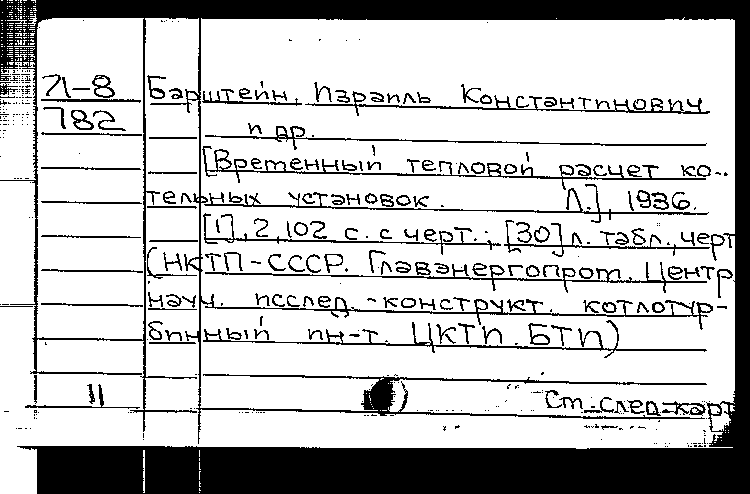 Л-8 Барштейн, Израиль Константинович
782 и др.
[Временный тепловой расчет ко-
тельных установок. Л.], 1936.
[1], 2, 102 с. с черт.; [30] л. табл., черт
(НКТП-СССР. Главэнергопром. Центр.
науч. исслед.-конструкт. котлотур-
бинный ин-т. ЦКТИ. БТИ)
11
См. след. карт